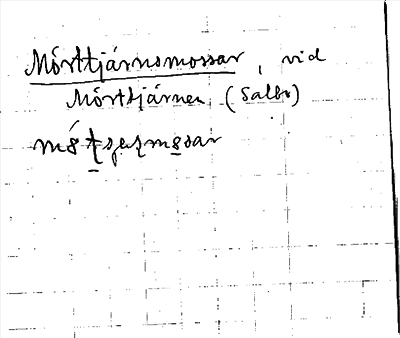 Mörttjärnsmossar, vid
Mörttjärnen (Salbo)